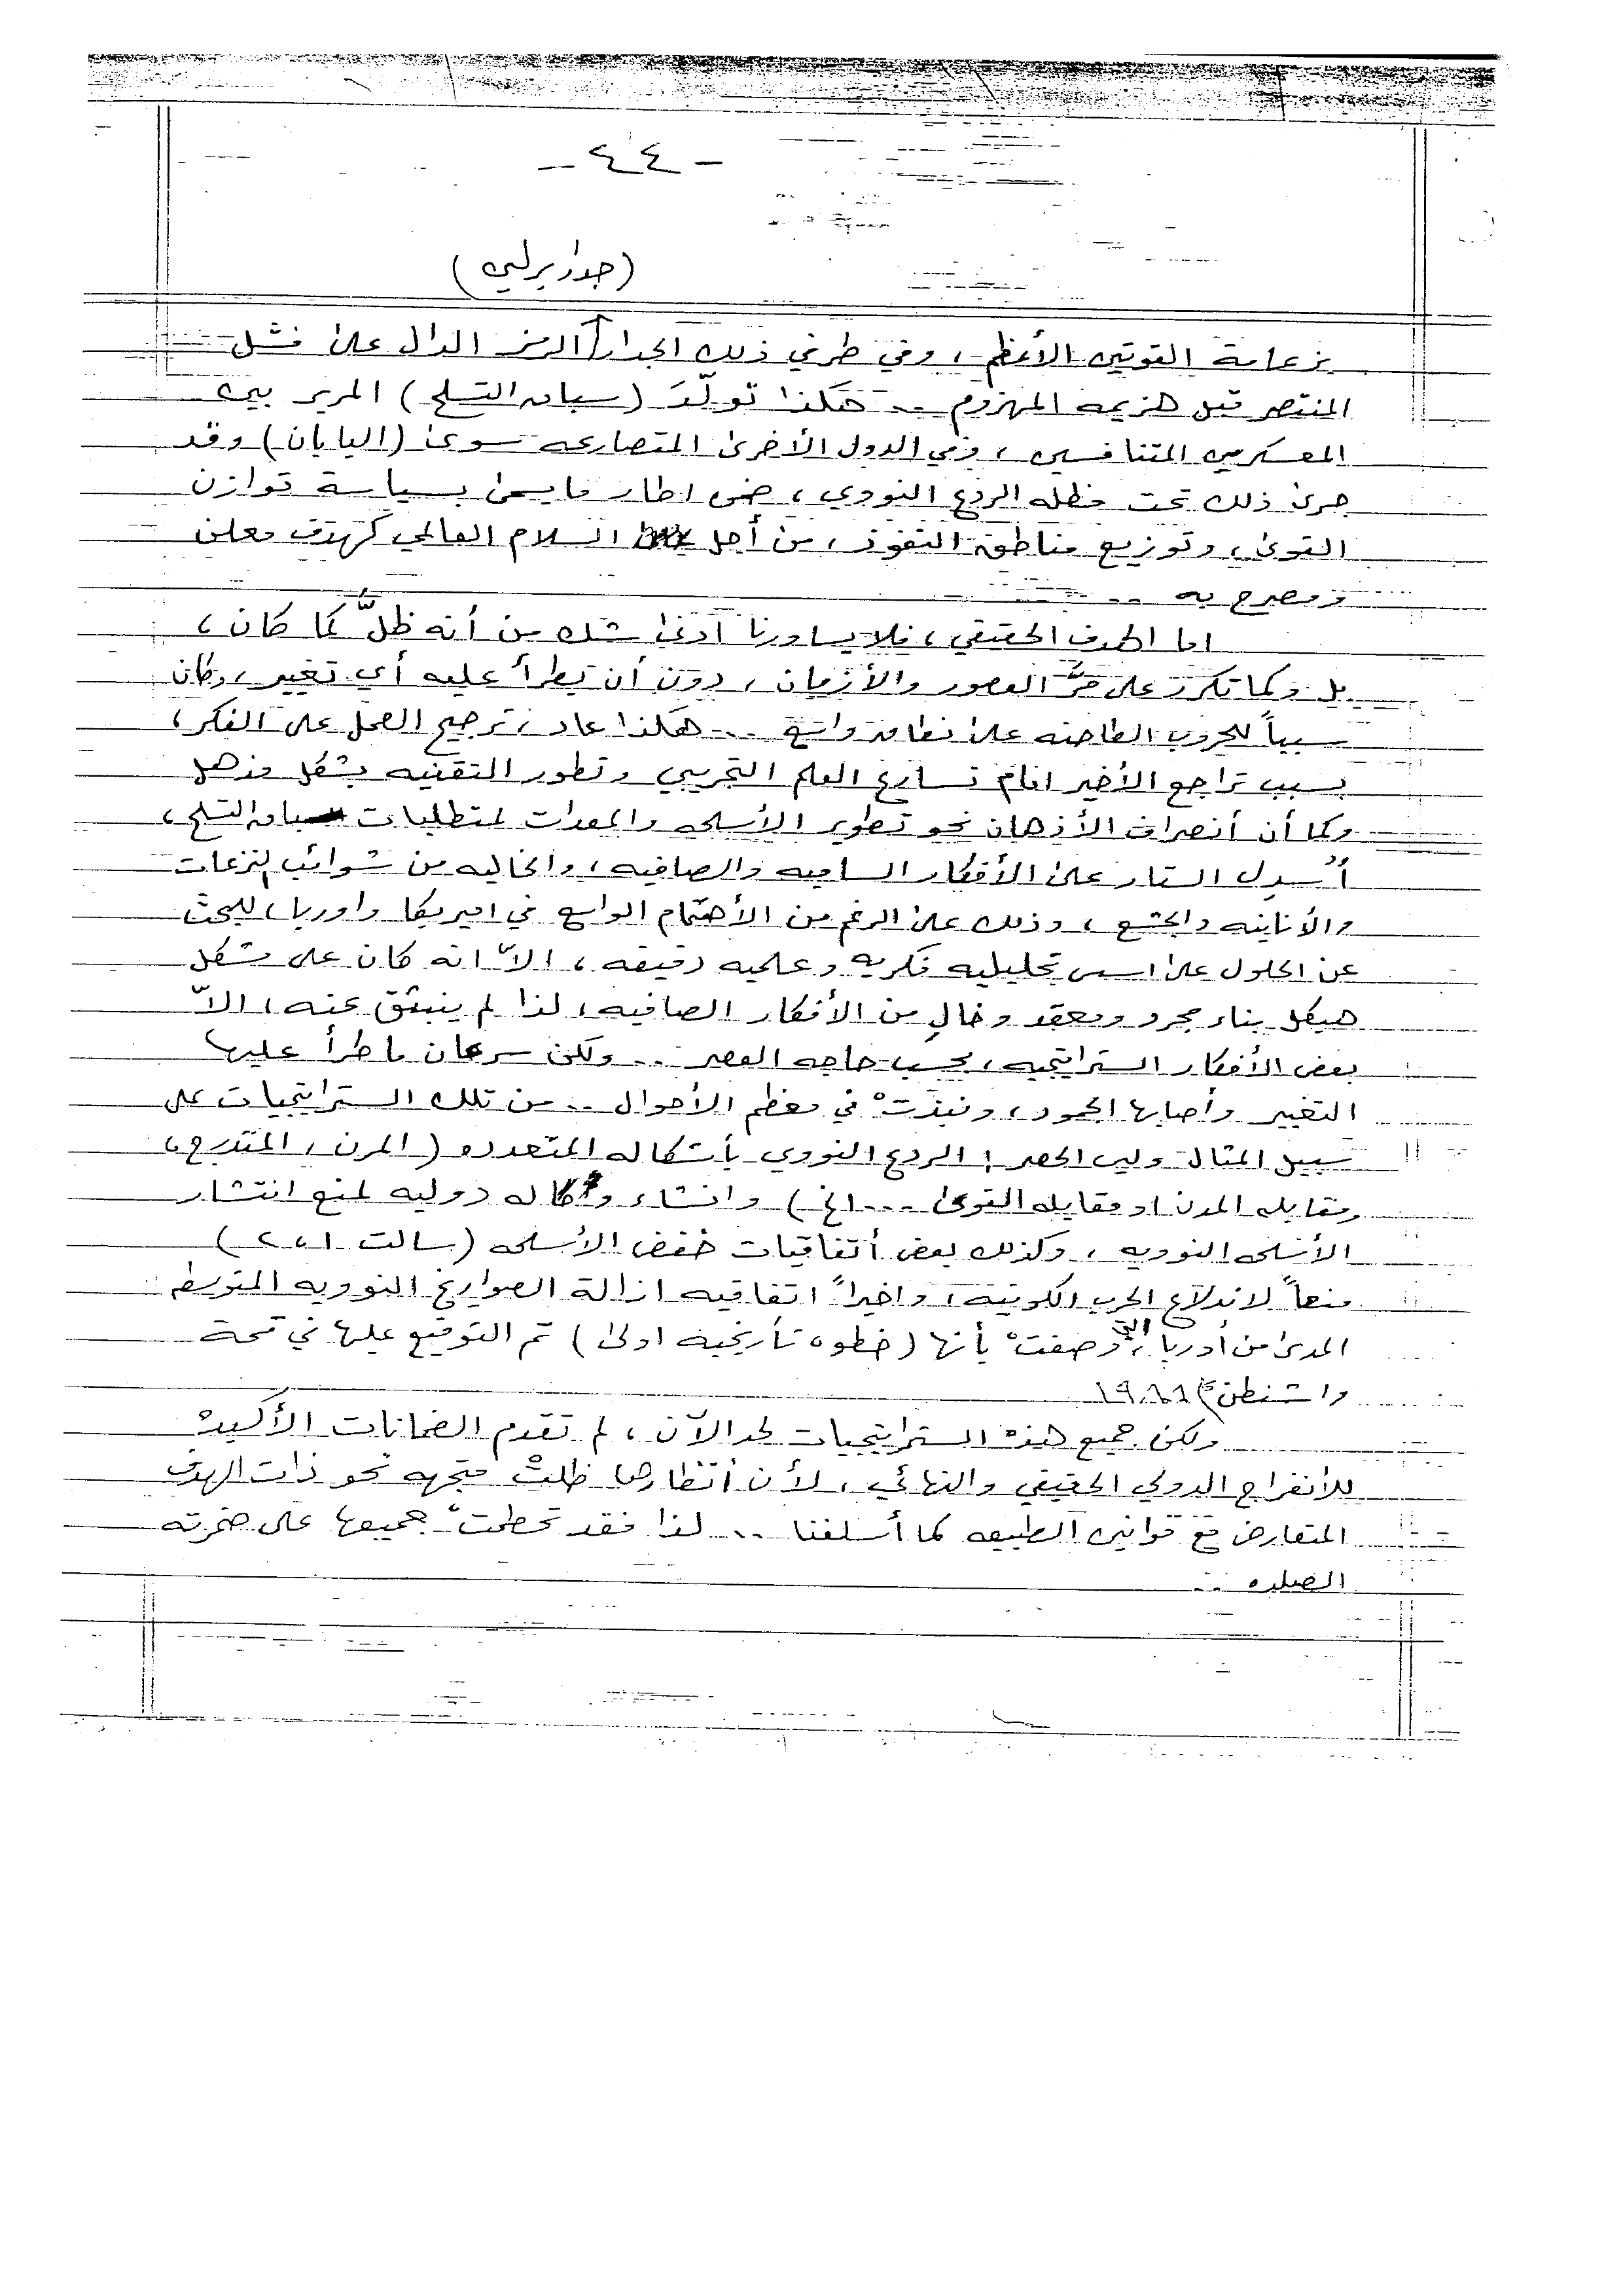 - ٤٤ -
(جدار برلين)
بزعامة القوتين الأعظم، وفي طرفي ذلك الجدار الرمز الدال على فشل
المنتصر قبل هزيمه المهزوم .. هكذا تولّدَ (سباق التسلح) المرير بين
المعسكرين المتنافسين، وفي الدول الأخرى المتصارعه سوى (اليابان) وقد
جرى ذلك تحت مظله الردع النووي، ضمن اطار ما يسمى بسياسة توازن
القوى، وتوزيع مناطق النفوذ، من أجل السلام العالمي كهدف معلن
ومصرح به ..
اما الهدف الحقيقي، فلا يساورنا أدنى شك من أنه ظلَّ كما كان،
بل وكما تكرر على مرَّ العصور والأزمان، دون أن يطرأ عليه أي تغيير، وكان
سبباً للحروب الطاحنه على نطاق واسع ... هكذا عاد، ترجيح العمل على الفكر،
بسبب تراجع الأخير امام تسارع العلم التجريبي وتطور التقنيه بشكل مذهل
وكما أن أنصراف الأذهان نحو تطوير الأسلحه والمعدات لمتطلبات سباق التسلح،
أُسدل الستار على الأفكار الساميه والصافيه، والخاليه من شوائب النزعات
والأنانيه والجشع، وذلك على الرغم من الأهتمام الواسع في امريكا واوربا، للبحث
عن الحلول على اسس تحليليه فكريه وعلميه دقيقه، الاّ انه كان على شكل
هيكل بناء مجرد ومعقد وخالٍ من الأفكار الصافيه، لذا لم ينبثق عنه، الاّ
بعض الأفكار الستراتيجيه، بحسب حاجه العصر ... ولكن سرعان ما طرأ عليها
التغيير وأصابها الجمود، ونبذتْ في معظم الأحوال .. من تلك الستراتيجيات على
سبيل المثال وليس الحصر: الردع النووي بأشكاله المتعدده (المرن، المتدرج،
ومقابله المدن او مقابله القوى ... الخ) وانشاء وكاله دوليه لمنع انتشار
الأسلحه النوويه، وكذلك بعض أتفاقيات خفض الأسلحه (سالت ١، ٢)
منعاً لاندلاع الحرب الكونية، واخيراً اتفاقيه ازالة الصواريخ النوويه المتوسطه
المدى من أوربا، التي وصفتْ بأنها (خطوه تأريخيه اولى) تم التوقيع عليها في قمة
واشنطن
ولكن جميع هذه الستراتيجيات لحد الآن، لم تقدم الضمانات الأكيدهْ
للأنفراج الدولي الحقيقي والنهائي، لأن أنظارها ظلتْ متجهه نحو ذات الهدف
المتعارض مع قوانين الطبيعه كما أسلفنا ... لذا فقد تحطمتْ جميعها على صخرته
الصلده ..